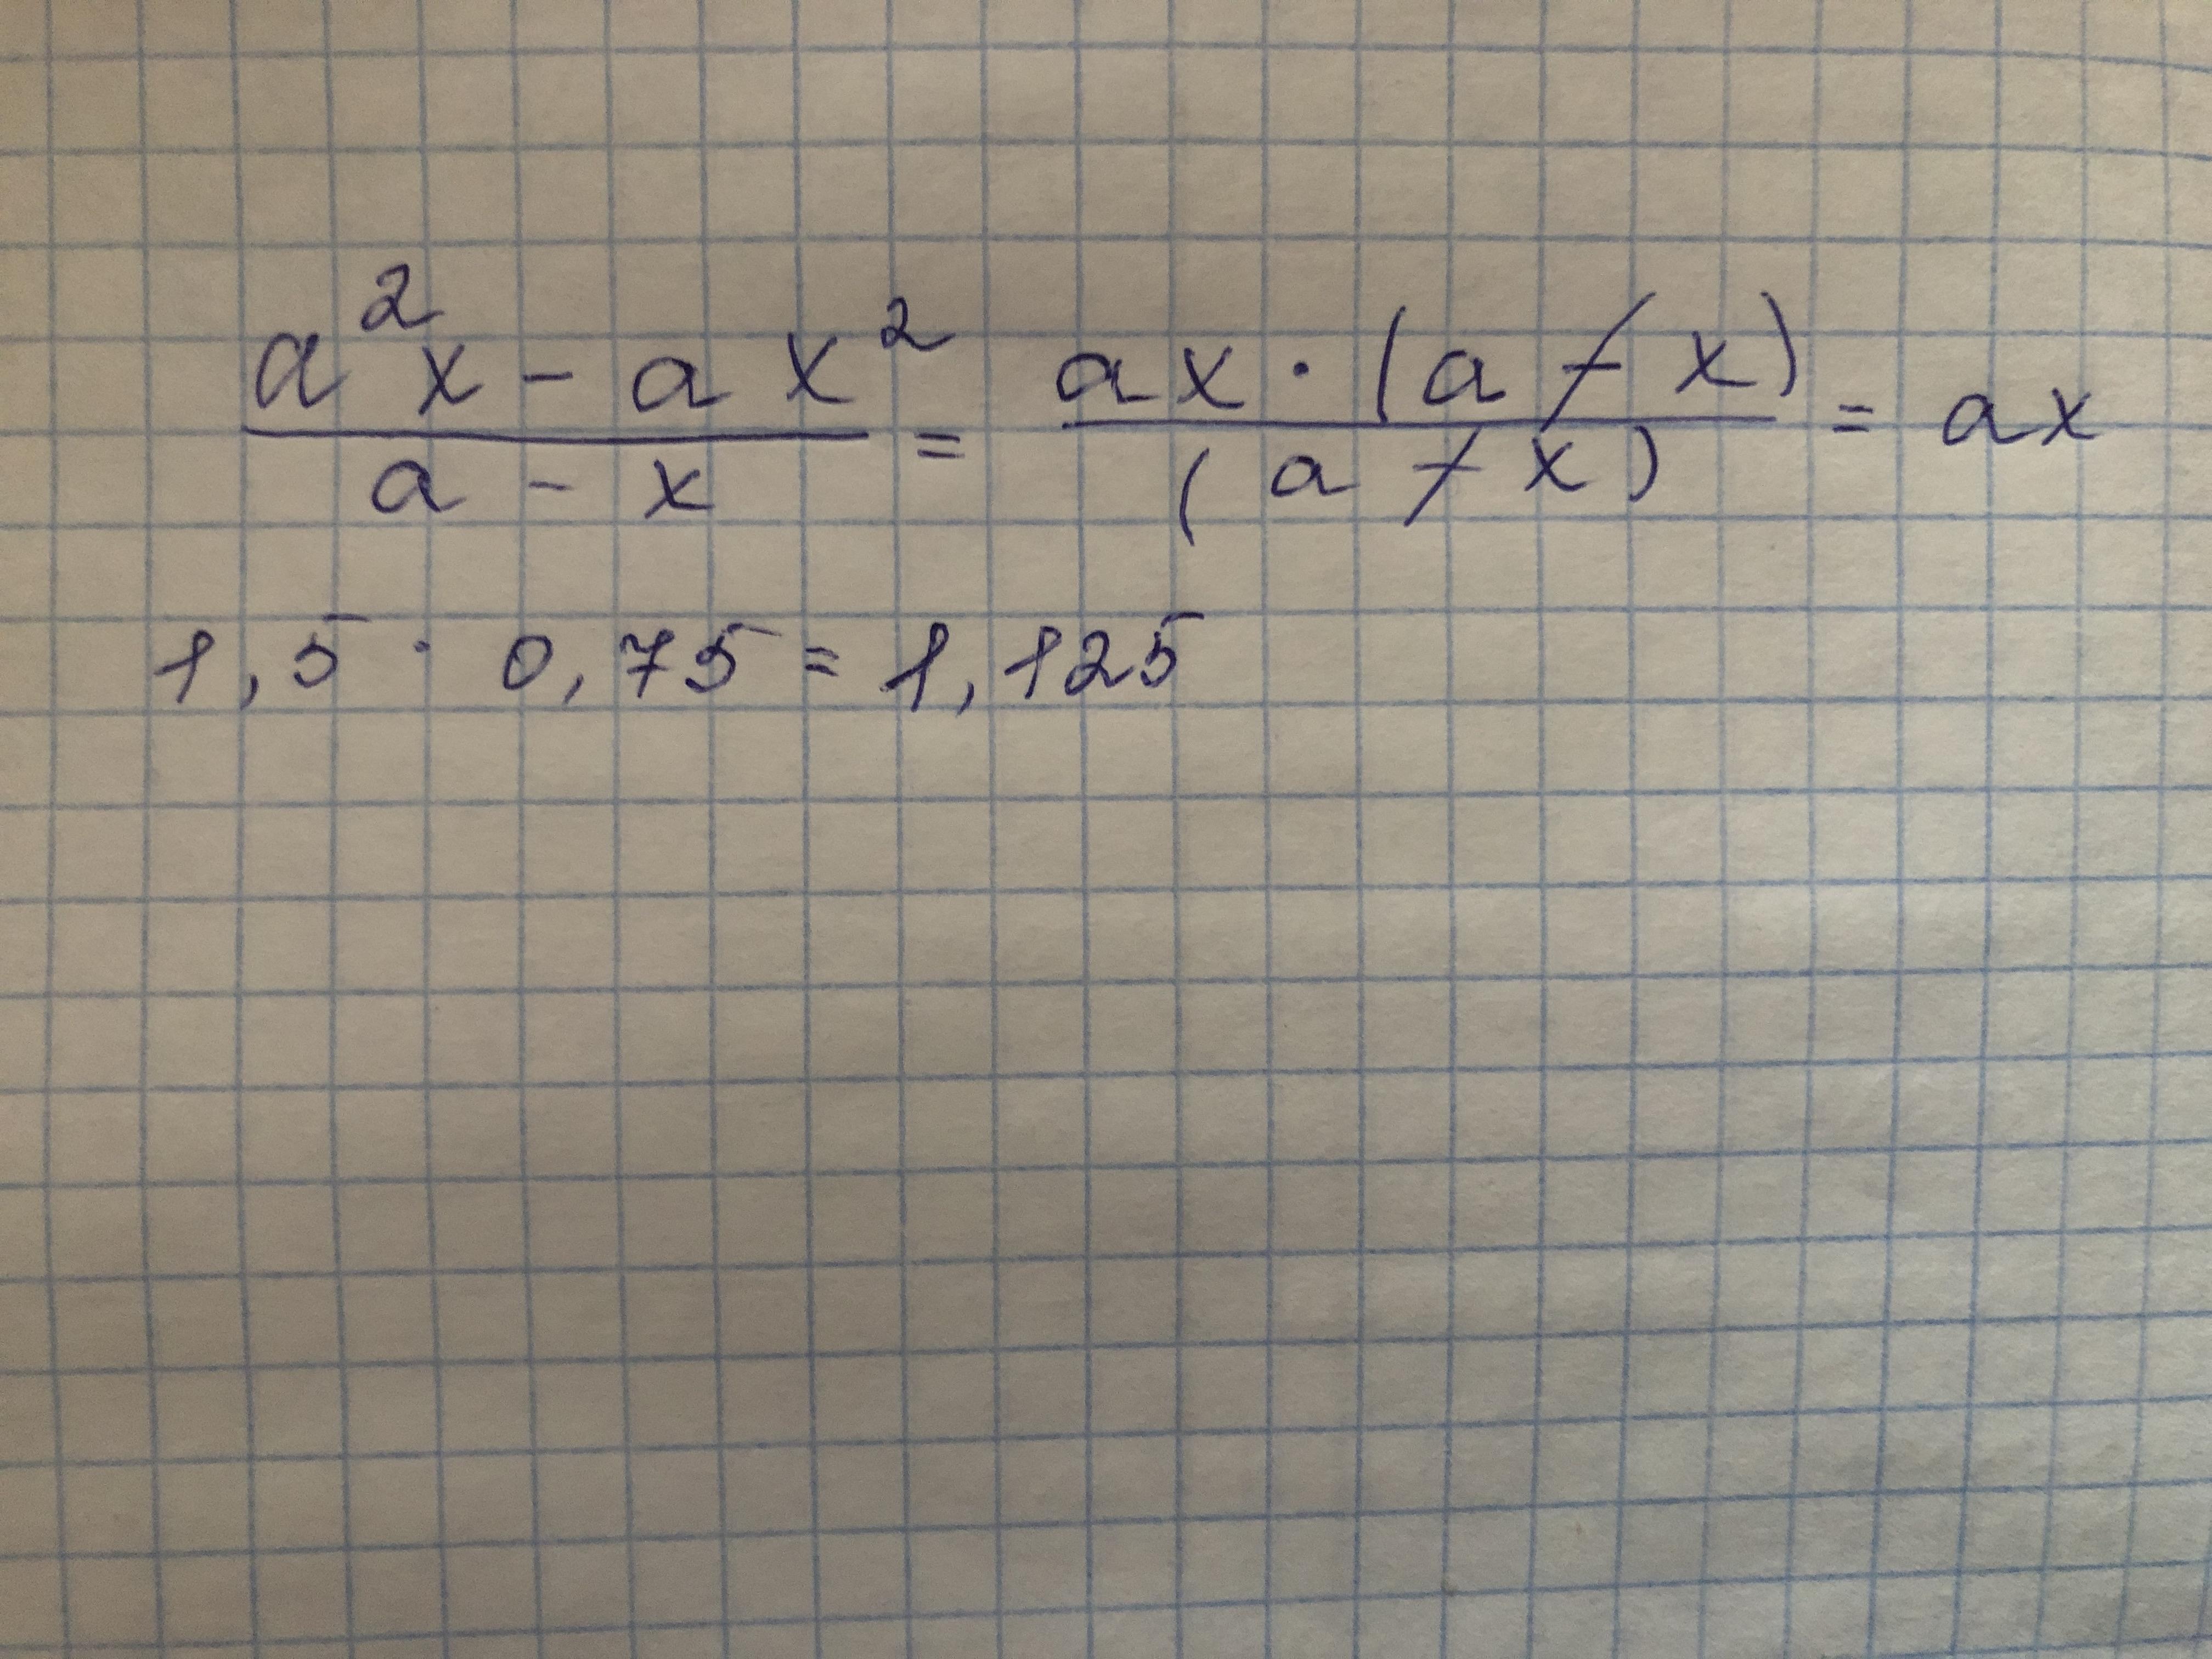 (a²x - ax²)/(a - x) = (ax · (a - x))/((a - x)) = ax
1,5 · 0,75 = 1,125